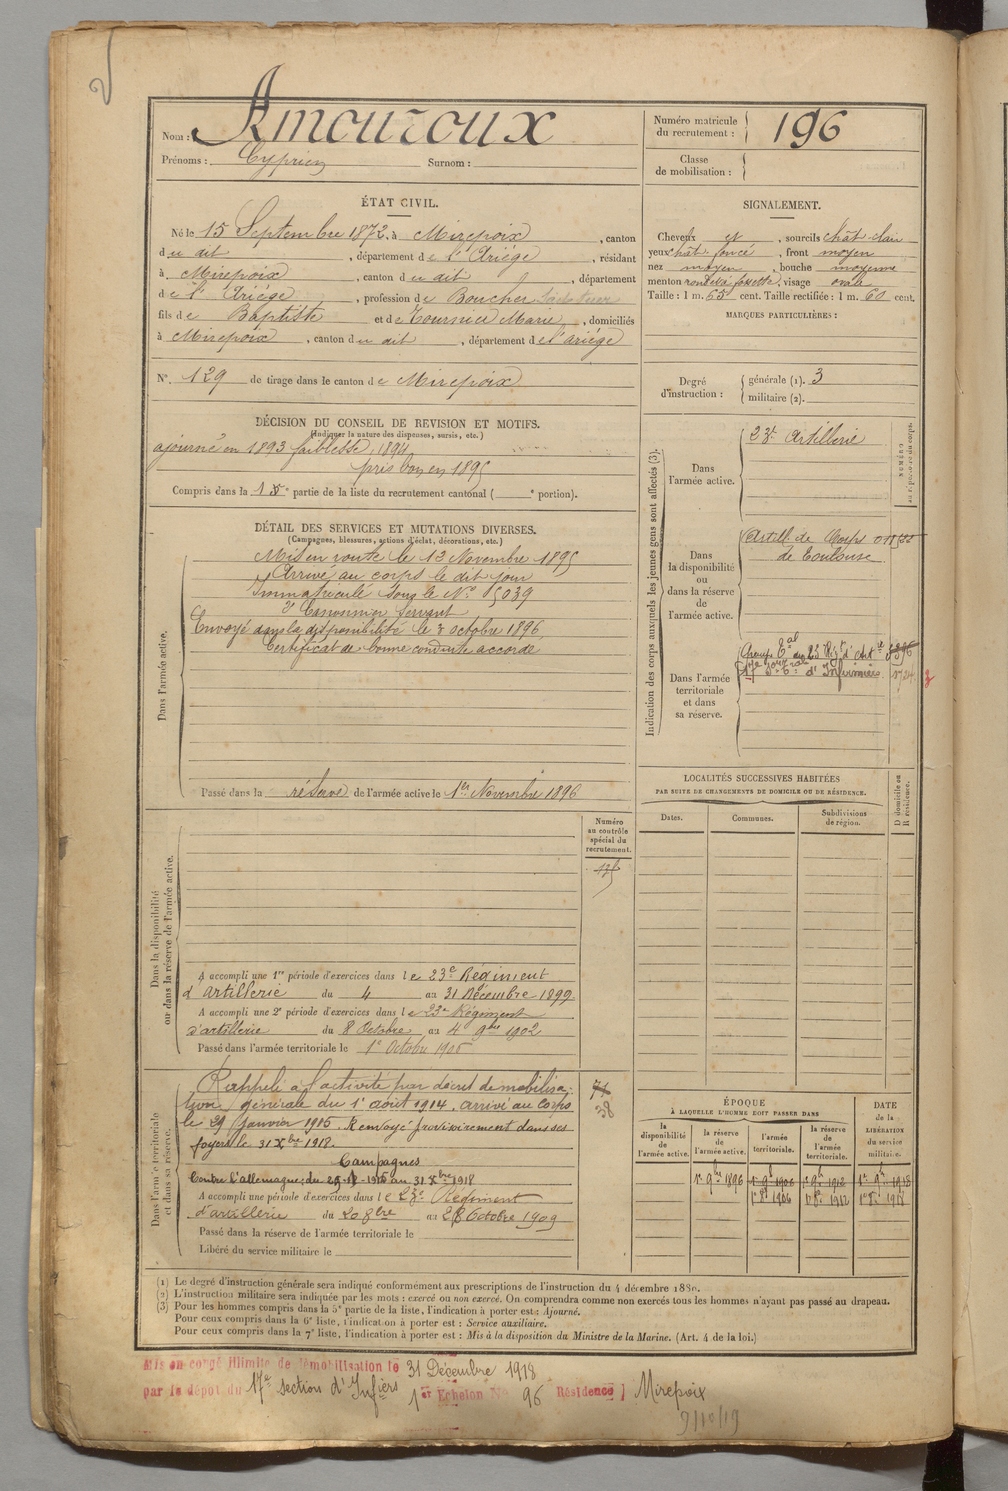 Nom : Amouroux
Prénoms : Cyprien Surnom :
Numéro matricule du recrutement : 196
Classe de mobilisation :
ÉTAT CIVIL.
Né le 15 Septembre 1872, à Mirepoix, canton
du dit, département de l'Ariége, résidant
à Mirepoix, canton du dit, département
de l'Ariége, profession de Boucher
fils de Baptiste et de Tournier Marie, domiciliés
à Mirepoix, canton du dit, département de l'ariége
N° 129 de tirage dans le canton de Mirepoix
SIGNALEMENT.
Cheveux et, sourcils chât-clair
yeux chât. foncé, front moyen
nez moyen, bouche moyenne
menton rond et à fossette, visage ovale
Taille : 1 m. 65 cent. Taille rectifiée : 1 m. 60 cent.
MARQUES PARTICULIÈRES :
Degré d'instruction : générale (1). 3
militaire (2).
DÉCISION DU CONSEIL DE REVISION ET MOTIFS.
(Indiquer la nature des dispenses, sursis, etc.)
ajourné en 1893 faiblesse, 1894
pris bon en 1895
Compris dans la partie de la liste du recrutement cantonal ( e portion).
DÉTAIL DES SERVICES ET MUTATIONS DIVERSES.
(Campagnes, blessures, actions d'éclat, décorations, etc.)
Dans l'armée active.
Mis en route le 12 Novembre 1895
Arrivé au corps le dit jour
Immatriculé sous le N° 5039
2e Canonnier Servant
Envoyé dans la disponibilité le 3 octobre 1896
Certificat de bonne conduite accordé
Passé dans la réserve de l'armée active le 1er Novembre 1896
Indication des corps auxquels les jeunes gens sont affectés (3).
NUMÉRO au répertoire du corps.
Dans l'armée active.
23e Artillerie
Dans la disponibilité ou dans la réserve de l'armée active.
Artill. de Corps
de Toulouse
Dans l'armée territoriale et dans sa réserve.
Groupe Tal du 23 Rgt d'Art
17e Son Tle d'Infirmiers
LOCALITÉS SUCCESSIVES HABITÉES
PAR SUITE DE CHANGEMENTS DE DOMICILE OU DE RÉSIDENCE.
Dates. Communes. Subdivisions de région. D domicile ou R résidence.
Dans la disponibilité ou dans la réserve de l'armée active.
Numéro au contrôle spécial du recrutement.
A accompli une 1re période d'exercices dans le 23e Régiment
d'artillerie du 4 au 31 Décembre 1899
A accompli une 2e période d'exercices dans le 23e Régiment
d'artillerie du 8 Octobre au 4 9bre 1902
Passé dans l'armée territoriale le 1e Octobre 1906
Dans l'armée territoriale et dans sa réserve.
71
38
Rappelé à l'activité par décret de mobilisa-
tion générale du 1e août 1914. arrivé au Corps
le 29 Janvier 1915. Renvoyé provisoirement dans ses
foyers le 31 Xbre 1918.
Campagnes
Contre l'allemagne; du 29-1-1915 au 31 Xbre 1918
A accompli une période d'exercices dans le 23e Régiment
d'artillerie du 20 8bre au 28 Octobre 1909
Passé dans la réserve de l'armée territoriale le
Libéré du service militaire le
ÉPOQUE
À LAQUELLE L'HOMME DOIT PASSER DANS
DATE de la LIBÉRATION du service militaire.
la disponibilité de l'armée active. la réserve de l'armée active. l'armée territoriale. la réserve de l'armée territoriale.
1e 9bre 1896 1e 9b 1906 1e 9b 1912 1e 9b 1918
1e 8b 1906 1e 8b 1912 1e 8b 1918
(1) Le degré d'instruction générale sera indiqué conformément aux prescriptions de l'instruction du 4 décembre 1889.
(2) L'instruction militaire sera indiquée par les mots : exercé ou non exercé. On comprendra comme non exercés tous les hommes n'ayant pas passé au drapeau.
(3) Pour les hommes compris dans la 5e partie de la liste, l'indication à porter est : Ajourné.
Pour ceux compris dans la 6e liste, l'indication à porter est : Service auxiliaire.
Pour ceux compris dans la 7e liste, l'indication à porter est : Mis à la disposition du Ministre de la Marine. (Art. 4 de la loi.)
Mis en congé illimité de démobilisation le 31 Décembre 1918
par le dépôt du 17e section d'Infiers 1er Echelon N° 96 Résidence Mirepoix
9/10/19